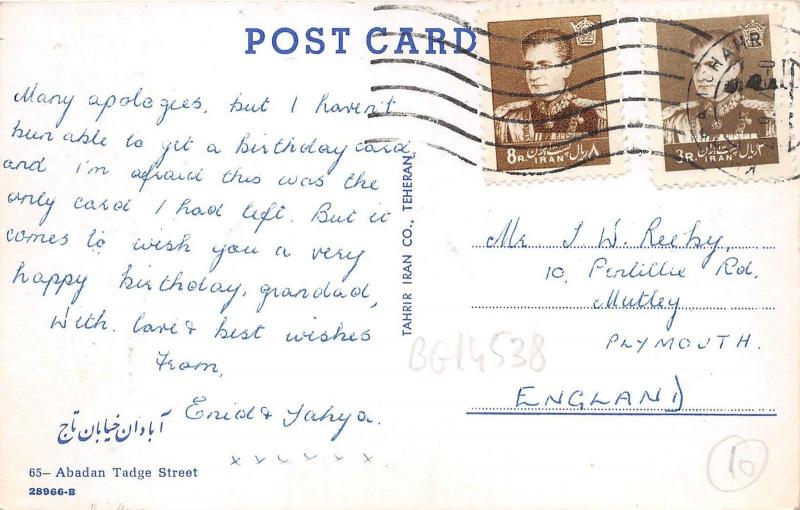 POST CARD
Many apologies, but I haven't
been able to get a birthday card,
and I'm afraid this was the
only card I had left. But it
comes to wish you a very
happy birthday, grandad,
With love & best wishes
From,
Enid & Yahya.
x x x x x x
آبادان خیابان تاج
65— Abadan Tadge Street
28966-B
TAHRIR IRAN CO., TEHERAN
8R. IRAN ۸ ریال
3R. IRAN
Mr J. W. Reeby,
10, Penlillie Rd.
Mutley
PLYMOUTH.
ENGLAND
BG14538
10